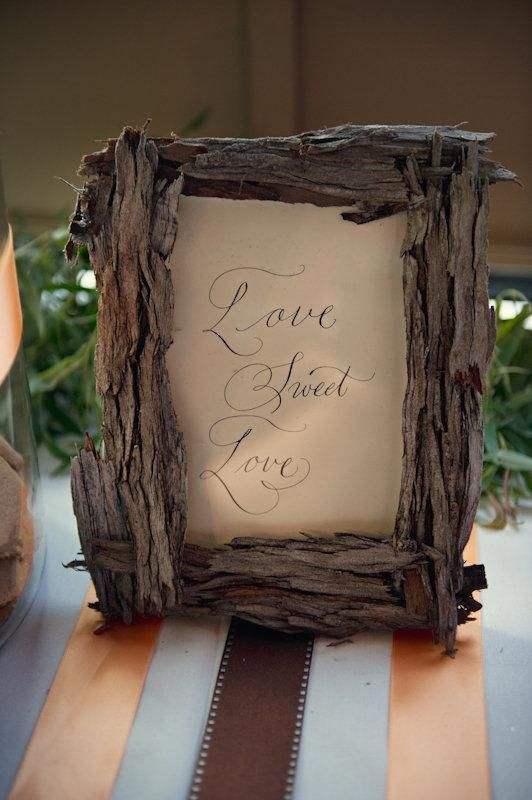 Love
Sweet
Love